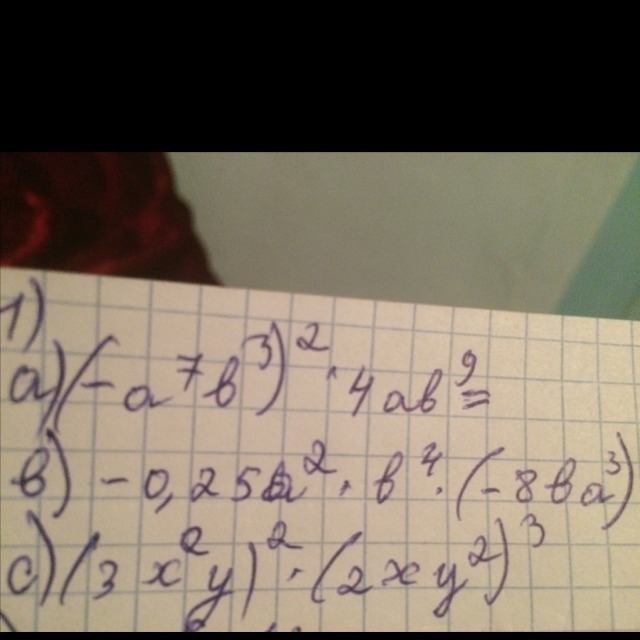 1)
a) (-a⁷b³)² · 4ab⁹ =
b) -0,25a² · b⁴ · (-8ba³)
c) (3x²y)² · (2xy²)³